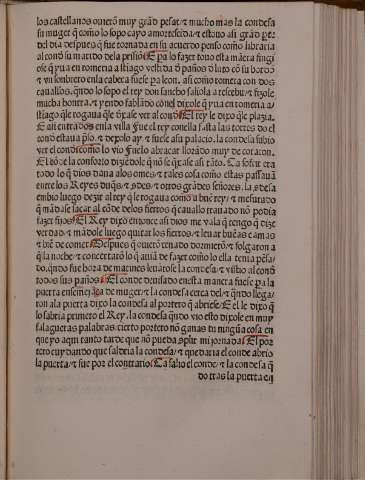 los castellanos ouierõ muy grãd pesar ⁊ mucho mas la condesa
su muger q̃ comõ lo sopo cayo amortescida ⁊ estouo asi grãd pec
del dia despues q̃ fue tornada en su acuerdo penso comõ libraria
al conde su marido dela prisiõ E pa lo fazer touo esta mãera fingi
ese q̃ yua en romeria a stiago vestida de pãños
⁊ vn sonbrero enla cabeça asi comõ romera con dos
cauallos. q̃ndo lo sopo el rey don sancho salio a recebir ⁊ fizole
mucha honrra. ⁊ yendo fablãdo cõnel dixole q̃ yua en romeria a
stiago q̃le rogaua ver al conde El rey le dixo q̃le plazia.
E asi entrados enla villa Fue el rey conella fasta las torres do el
conde estaua ⁊ dexolo ay ⁊ fuese asu palacio. la condesa subio
ver el conde comõ lo vio Fuelo abraçar llorãdo muy de coraçon.
El cõde la conforto diziẽdole q̃ nõ se q̃xase asi tãto. Ca sofrir era
todo lo q̃ dios daua alos omes ⁊ tales cosas comõ estas passauã
entre los Reyes duq̃s ⁊ cõdes ⁊ otros grãdes señores. la cõdesa
enbio luego dezir al rey q̃ le rogaua como a buẽ rey ⁊ mesurado
q̃ mãdase sacar al cõde delos fierros q̃ cauallo trauado nõ podia
fazer fijos El Rey dixo entonce asi dios me vala q̃ tengo q̃ dize
verdad ⁊ mãdole luego quitar los fierros ⁊ leuar buẽas camas
⁊ biẽ de comer Despues q̃ ouierõ cenado dormierõ ⁊ folgaron a
q̃lla noche ⁊ concertarõ lo q̃ auiã de fazer comõ lo ella tenia pẽsa/
do. q̃ndo fue hora de matines leuãtose la condesa ⁊ vistio al conde
todos sus paños El conde desta manera fuese pa la
puerta en semejãça de muger ⁊ la condesa cerca del ⁊ q̃ndo llega/
ron ala puerta dixo la condesa al portero q̃ abriese E el le dixo q̃
lo sabria primero el Rey. la condesa q̃ndo vio esto dixole en muy
falagueras palabras. cierto portero nõ ganas tu ningũa cosa en
que yo aqui tanto tarde que nõ pueda mi jornada El por
tero cuydando que saldria la condesa ⁊ quedaria el conde abrio
la puerta ⁊ fue por el contrario Ca salio el conde ⁊ la condesa q̃
do tras la puerta en